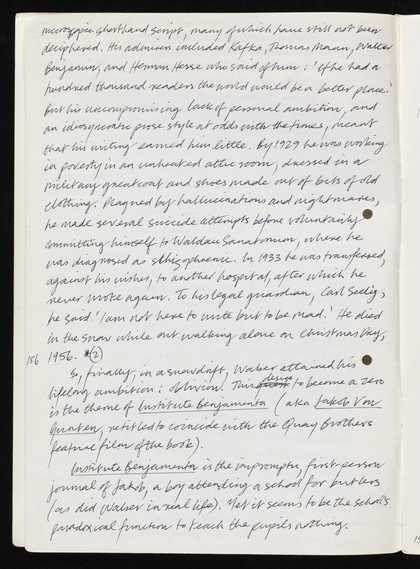 microscopic shorthand script, many of which have still not been
deciphered. His admirers included Kafka, Thomas Mann, Walter
Benjamin, and Herman Hesse who said of him: 'If he had a
hundred thousand readers the world would be a better place.'
But his uncompromising lack of personal ambition, and
an idiosyncratic prose style at odds with the times, meant
that his writing earned him little. By 1929 he was working
in poverty in an unheated attic room, dressed in a
military greatcoat and shoes made out of bits of old
clothing. Plagued by hallucinations and nightmares,
he made several suicide attempts before voluntarily
committing himself to Waldau Sanatorium, where he
was diagnosed as schizophrenic. In 1933 he was transferred,
against his wishes, to another hospital, after which he
never wrote again. To his legal guardian, Carl Seelig,
he said: 'I am not here to write but to be mad.' He died
in the snow while out walking alone on Christmas Day,
156 1956. (2)
So, finally, in a snowdrift, Walser attained his
lifelong ambition: oblivion. This desire to become a zero
is the theme of Institute Benjamenta (aka Jakob Von
Gunten, retitled to coincide with the Quay Brothers
feature film of the book).
Institute Benjamenta is the impromptu, first-person
journal of Jakob, a boy attending a school for butlers
(as did Walser in real life). Yet it seems to be the school's
paradoxical function to teach the pupils nothing.